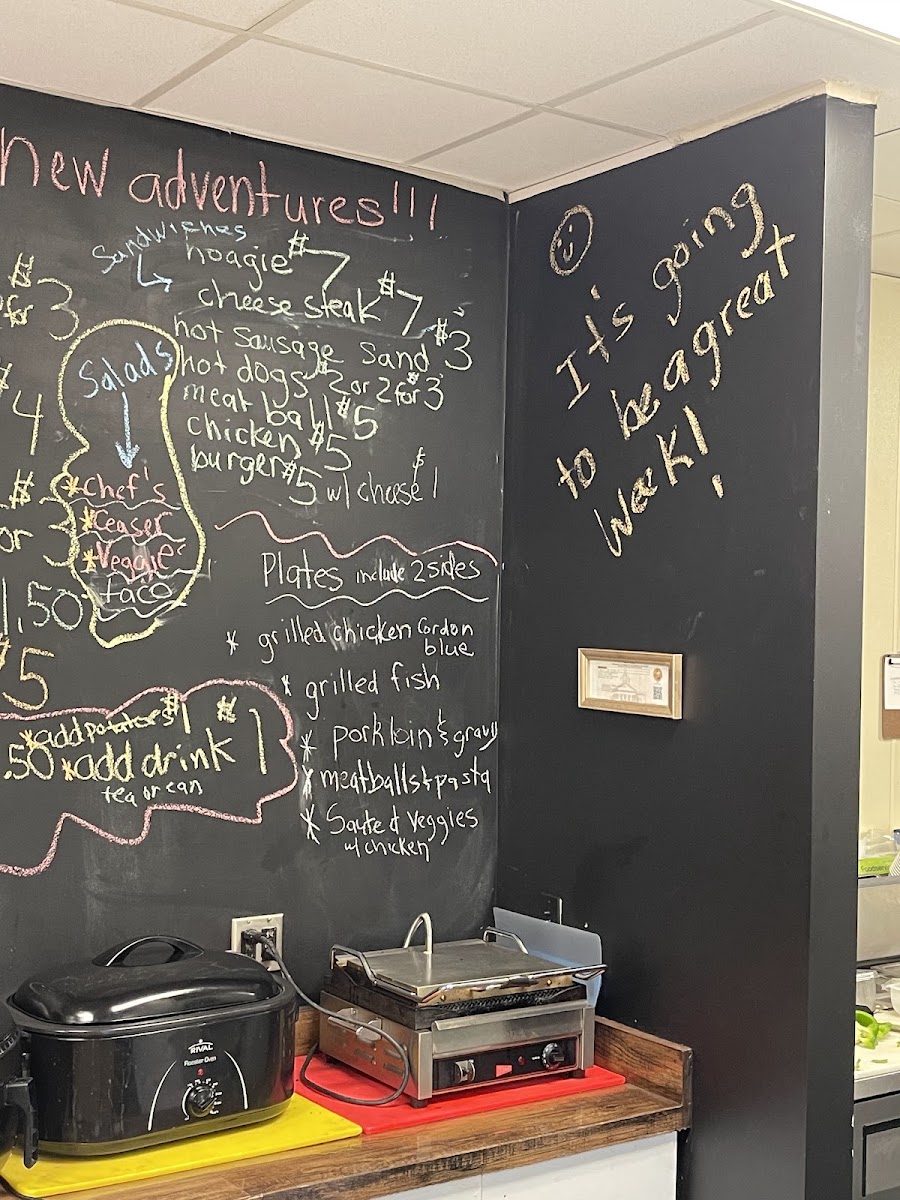 new adventures!!!
Sandwiches
hoagie $7
cheese steak $7
hot sausage sand $3
hot dogs $2 or 2 for $3
meat ball $5
chicken $5
burger $5 w/ cheese $1
$
for 3
$
4
$
or 3
1.50
5
Salads
*Chef's
*Ceaser
*Veggie
taco
Plates include 2 sides
* grilled chicken Cordon
blue
* grilled fish
* pork loin & gravy
* meatballs & pasta
* Sauted veggies
w/ chicken
*add potatoes $1
.50 *add drink $1
tea or can
It's going
to be a great
week!
RIVAL
Roaster Oven